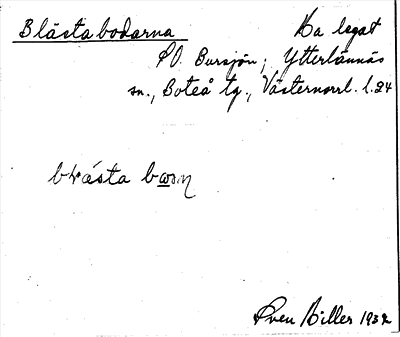 Blåstabodarna Ha legat
SO. Bursjön; Ytterlännäs
sn., Boteå tg., Västernorrl. l. 24
Sven Hiller 1932